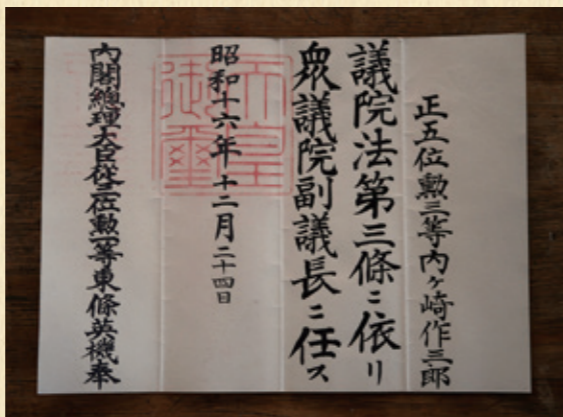 正五位勲三等内ヶ崎作三郎
議院法第三條ニ依リ
衆議院副議長ニ任ス
天皇御璽
昭和十六年十二月二十四日
內閣總理大臣從三位勲一等東條英機奉